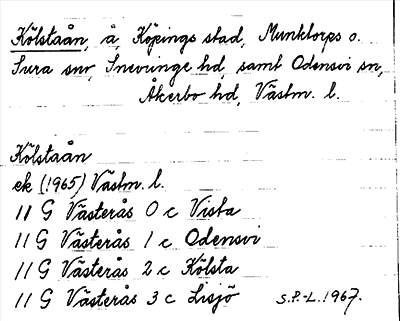 Kölstaån, å, Köpings stad, Munktorps o.
Sura snr, Snevringe hd, samt Odensvi sn,
Åkerbo hd, Västm. l.
Kölstaån
ek (1965) Västm. l.
11 G Västerås 0 c Vista
11 G Västerås 1 c Odensvi
11 G Västerås 2 c Kölsta
11 G Västerås 3 c Lisjö S.P.-L. 1967.